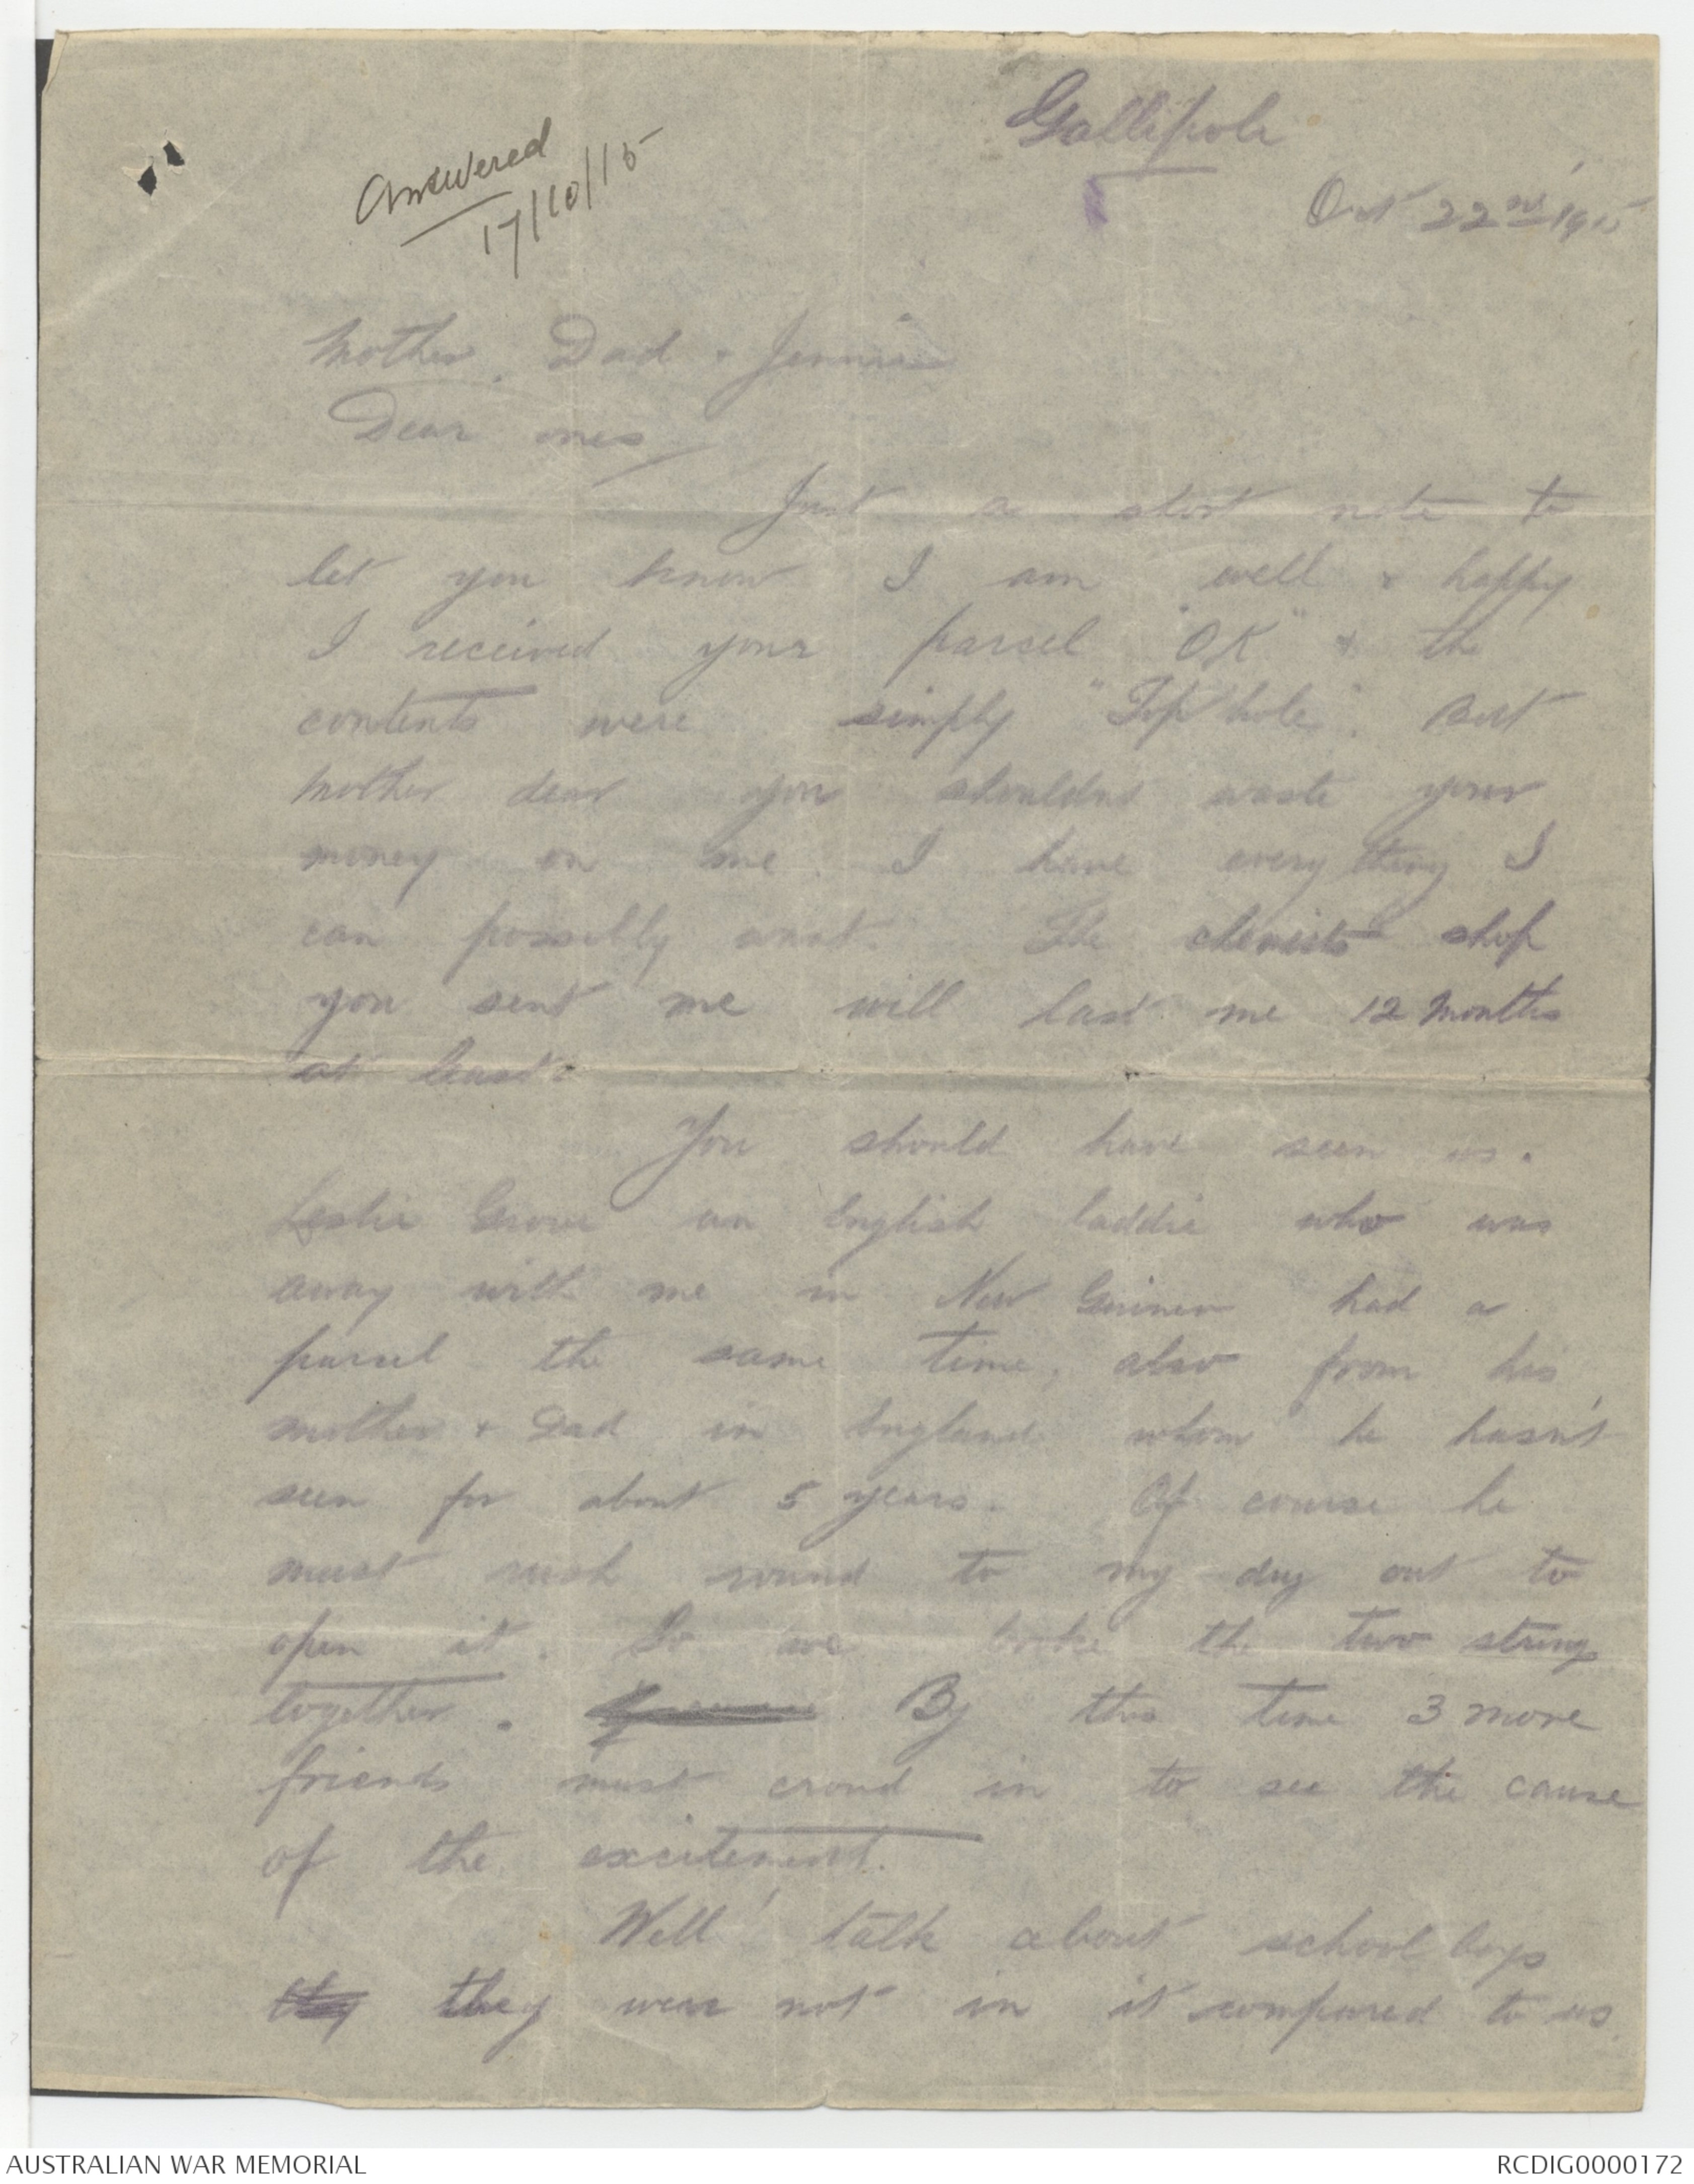 Gallipoli
Answered
17/10/15
Oct 22nd 1915
Mother, Dad & Jennie
Dear ones
Just a short note to
let you know I am well & happy
I received your parcel "OK" & the
contents were simply "Top hole". But
Mother dear you shouldnt waste your
money on me. I have every thing I
can possibly want. The chemists shop
you sent me will last me 12 Months
at least.
You should have seen us.
Leslie Grove an English laddie who was
away with me in New Guinea had a
parcel the same time, also from his
mother & Dad in England whom he hasn't
seen for about 5 years. Of course he
must rush round to my dug out to
open it. So we broke the two strings
together. By this time 3 more
friends must crowd in to see the cause
of the excitement.
Well! talk about school boys
they they were not in it compared to us.
AUSTRALIAN WAR MEMORIAL
RCDIG0000172